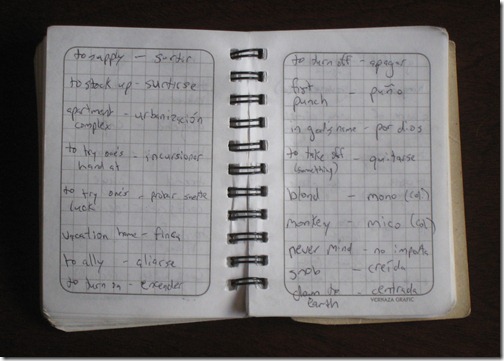 to supply - surtir
to stock up - surtirse
apartment - urbanización
complex
to try one's - incursionar
hand at
to try one's - probar suerte
luck
vacation home - finca
to ally - aliarse
to turn on - encender
to turn off - apagar
fist - puño
punch
in god's name - por dios
to take off - quitarse
(something)
blond - mono (col)
monkey - mico (col)
never mind - no importa
snob - creída
down to - centrada
earth
VERNAZA GRAFIC